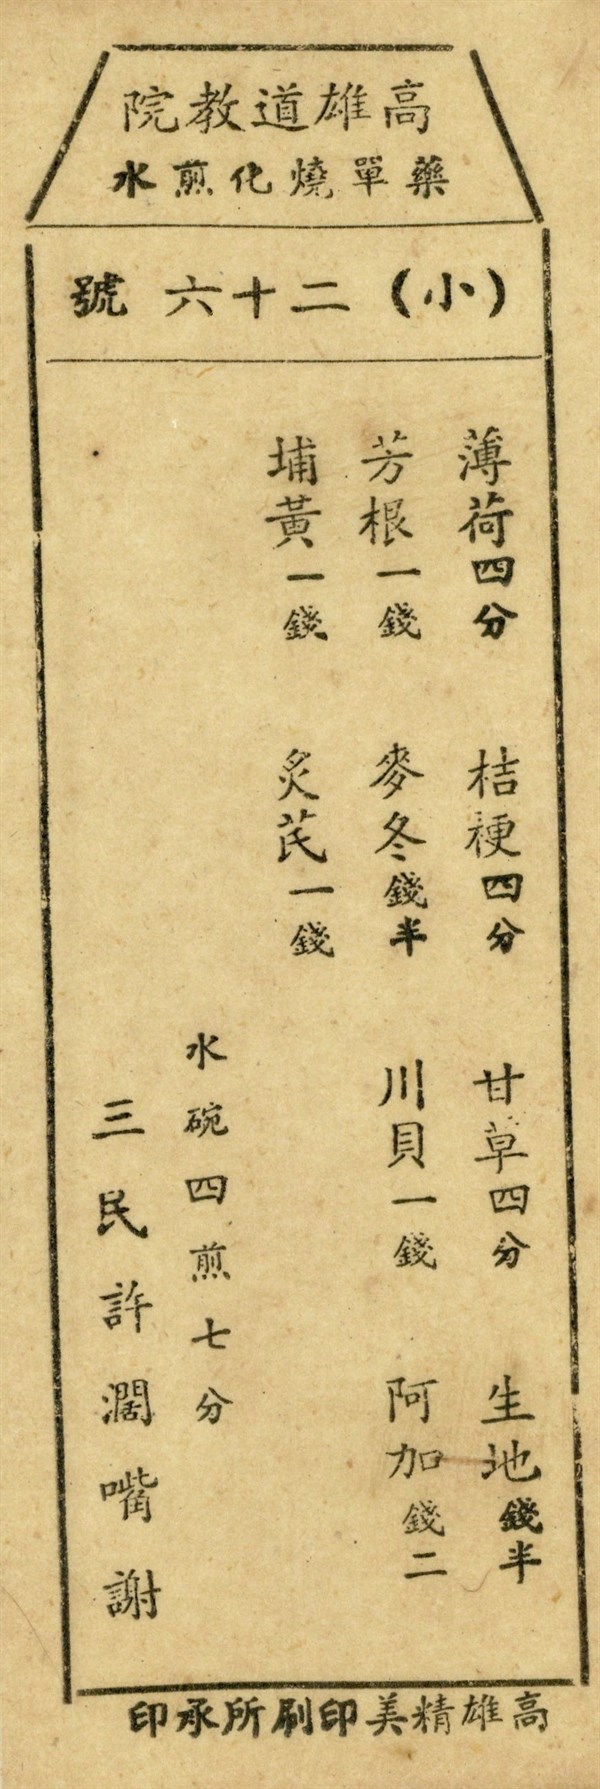 高雄道教院
藥單燒化煎水
（小）二十六號
薄荷四分 桔梗四分 甘草四分 生地錢半
芳根一錢 麥冬錢半 川貝一錢 阿加錢二
埔黃一錢 炙芪一錢
水碗四煎七分
三民許濶嘴謝
高雄精美印刷所承印